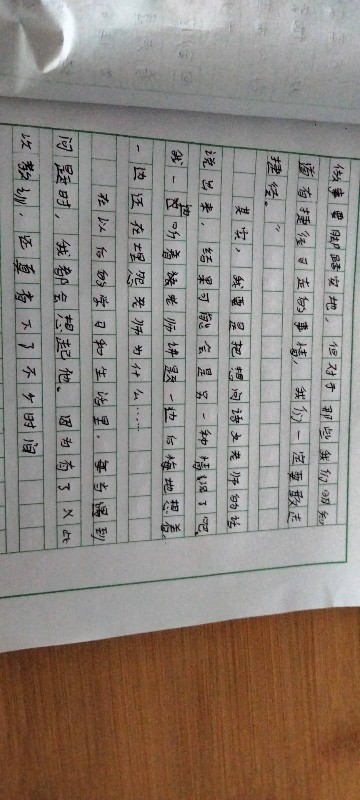 做事要脚踏实地，但对于那些我们明知
道有捷径可走的事情，我们一定要敢走
捷径。”
其实，我要是把想问语文老师的话
说出来，结果可能会是另一种情况了吧。
我一边听着杨老师讲题一边后悔地想着，
一边还在埋怨老师为什么……
在以后的学习和生活里，每当遇到
问题时，我都会想起他。因为有了这次
次教训，还真省下了不少时间